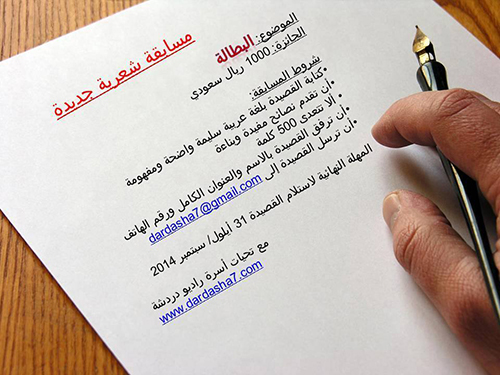 مسابقة شعرية جديدة
الموضوع: البطالة
الجائزة: 1000 ريال سعودي
شروط المسابقة:
•كتابة القصيدة بلغة عربية سليمة واضحة ومفهومة
•أن تقدم نصائح مفيدة وبناءة
•ألا تتعدى 500 كلمة
•أن ترفق القصيدة بالاسم والعنوان الكامل ورقم الهاتف
•أن ترسل القصيدة الى dardasha7@gmail.com
المهلة النهائية لاستلام القصيدة 31 أيلول/ سبتمبر 2014
مع تحيات أسرة راديو دردشة
www.dardasha7.com